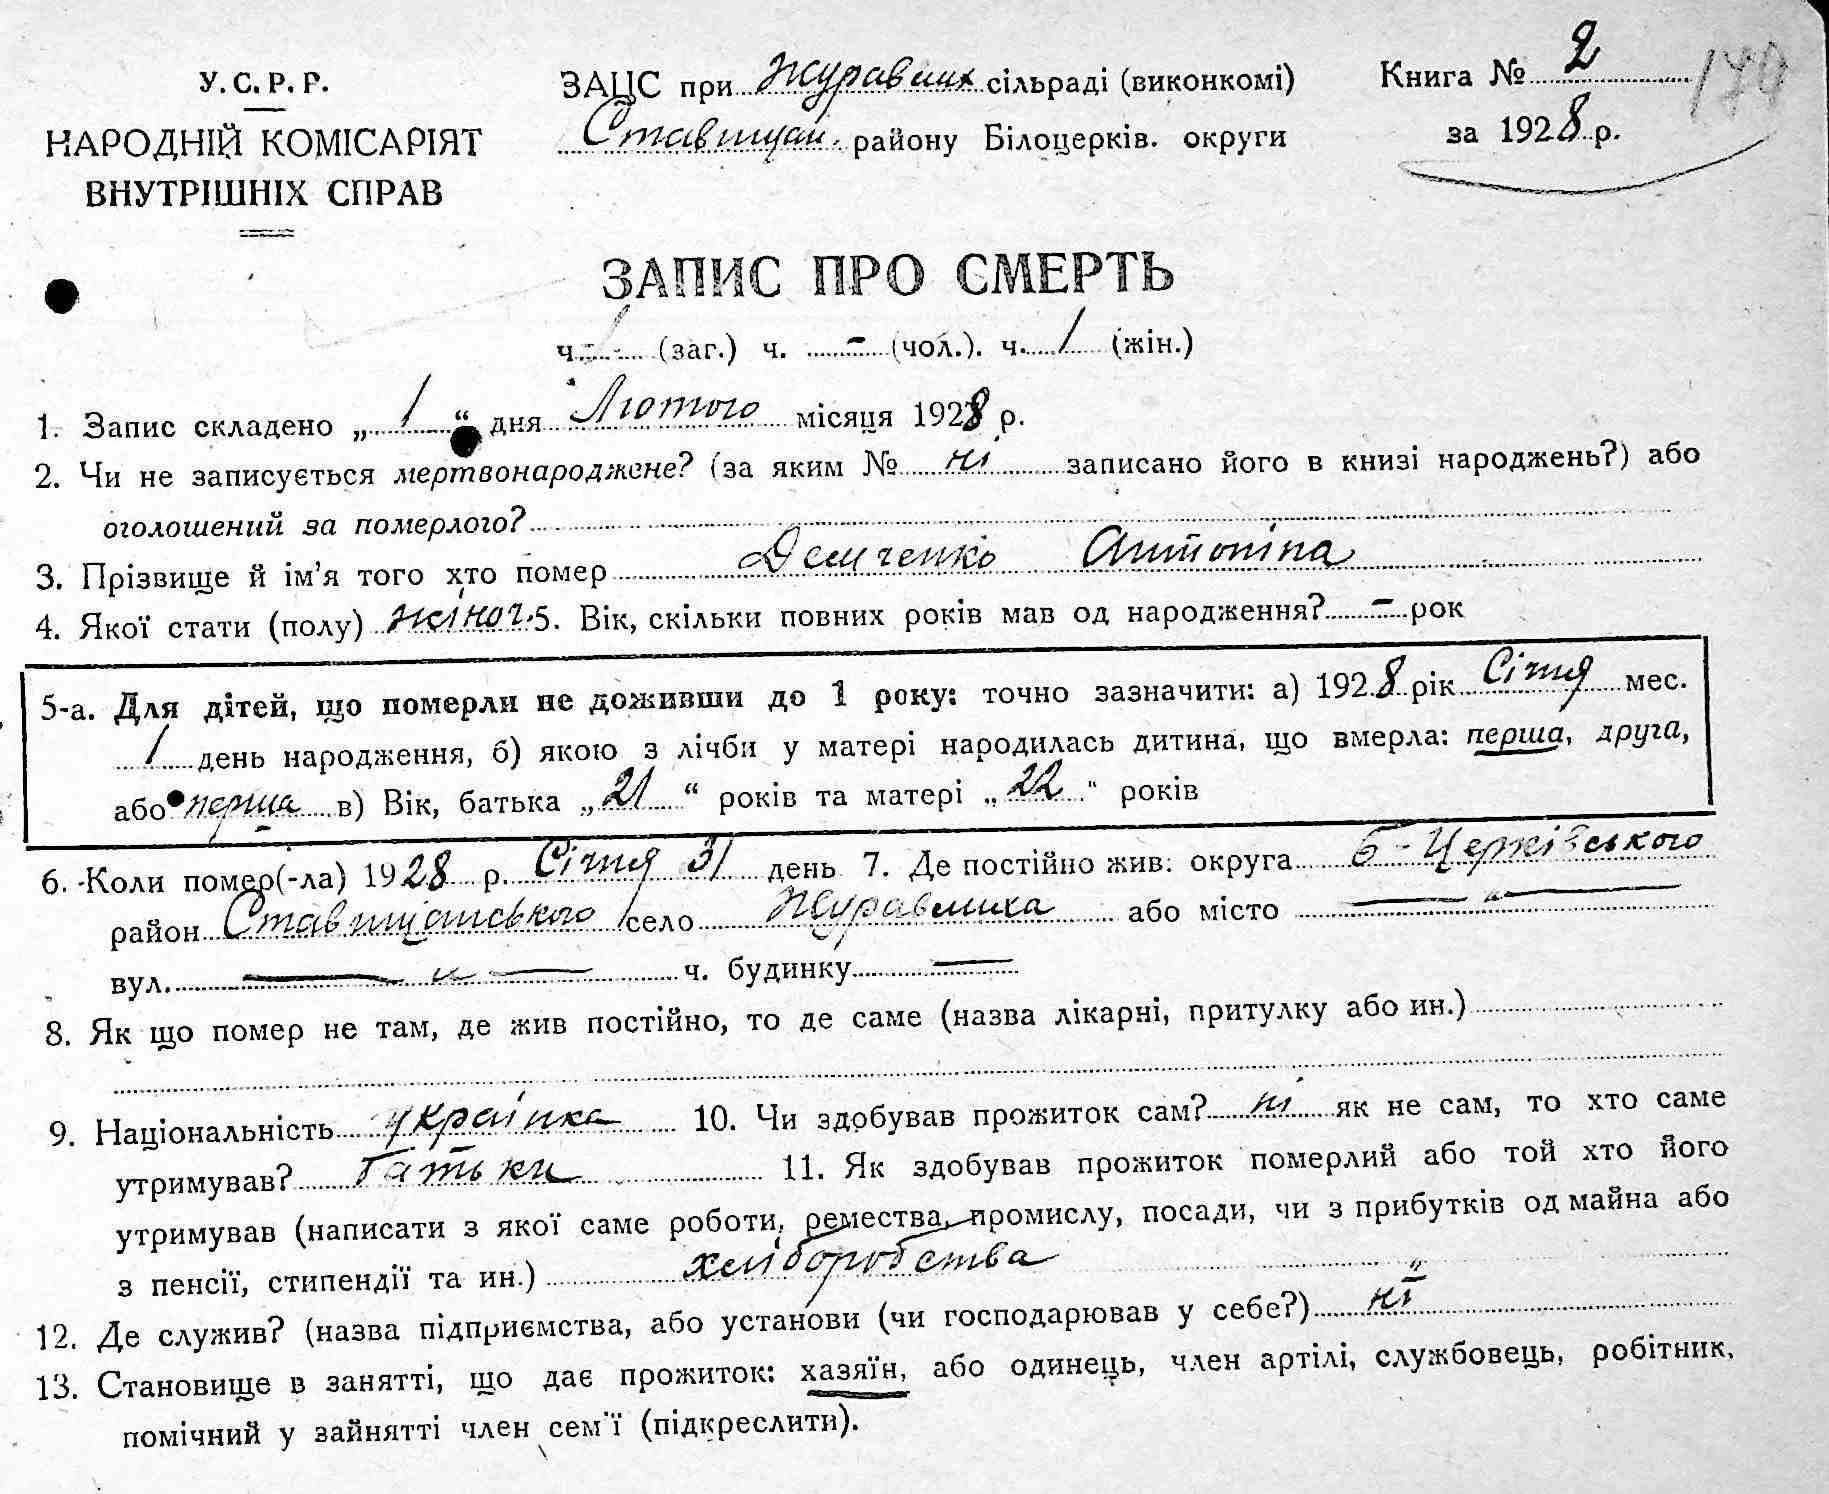 У.С.Р.Р.
НАРОДНІЙ КОМІСАРІЯТ
ВНУТРІШНІХ СПРАВ
ЗАЦС при Журавлих сільраді (виконкомі)
Ставищан. району Білоцерків. округи
Книга № 2
за 1928 р.
170
ЗАПИС ПРО СМЕРТЬ
ч. 1 (заг.) ч. - (чол.). ч. 1 (жін.)
1. Запис складено „ 1 “ дня Лютого місяця 1928 р.
2. Чи не записується мертвонароджене? (за яким № ні записано його в книзі народжень?) або
оголошений за померлого?
3. Прізвище й ім’я того хто помер Демченко Антоніна
4. Якої стати (полу) жіноч. 5. Вік, скільки повних років мав од народження? - рок
5-а. Для дітей, що померли не доживши до 1 року: точно зазначити: а) 1928 рік Січня мес.
1 день народження, б) якою з лічби у матері народилась дитина, що вмерла: перша, друга,
або перша в) Вік, батька „ 21 “ років та матері „ 22 “ років
6. Коли помер(-ла) 1928 р. Січня 31 день 7. Де постійно жив: округа Б-Церківського
район Ставищанського село Журавлиха або місто — „ —
вул. — „ — ч. будинку —
8. Як що помер не там, де жив постійно, то де саме (назва лікарні, притулку або ин.)
9. Національність українка 10. Чи здобував прожиток сам? ні як не сам, то хто саме
утримував? батьки 11. Як здобував прожиток померлий або той хто його
утримував (написати з якої саме роботи, ремества, промислу, посади, чи з прибутків од майна або
з пенсії, стипендії та ин.) хліборобства
12. Де служив? (назва підприємства, або установи (чи господарював у себе?) ні
13. Становище в занятті, що дає прожиток: хазяїн, або одинець, член артілі, службовець, робітник,
помічний у зайнятті член сем’ї (підкреслити).